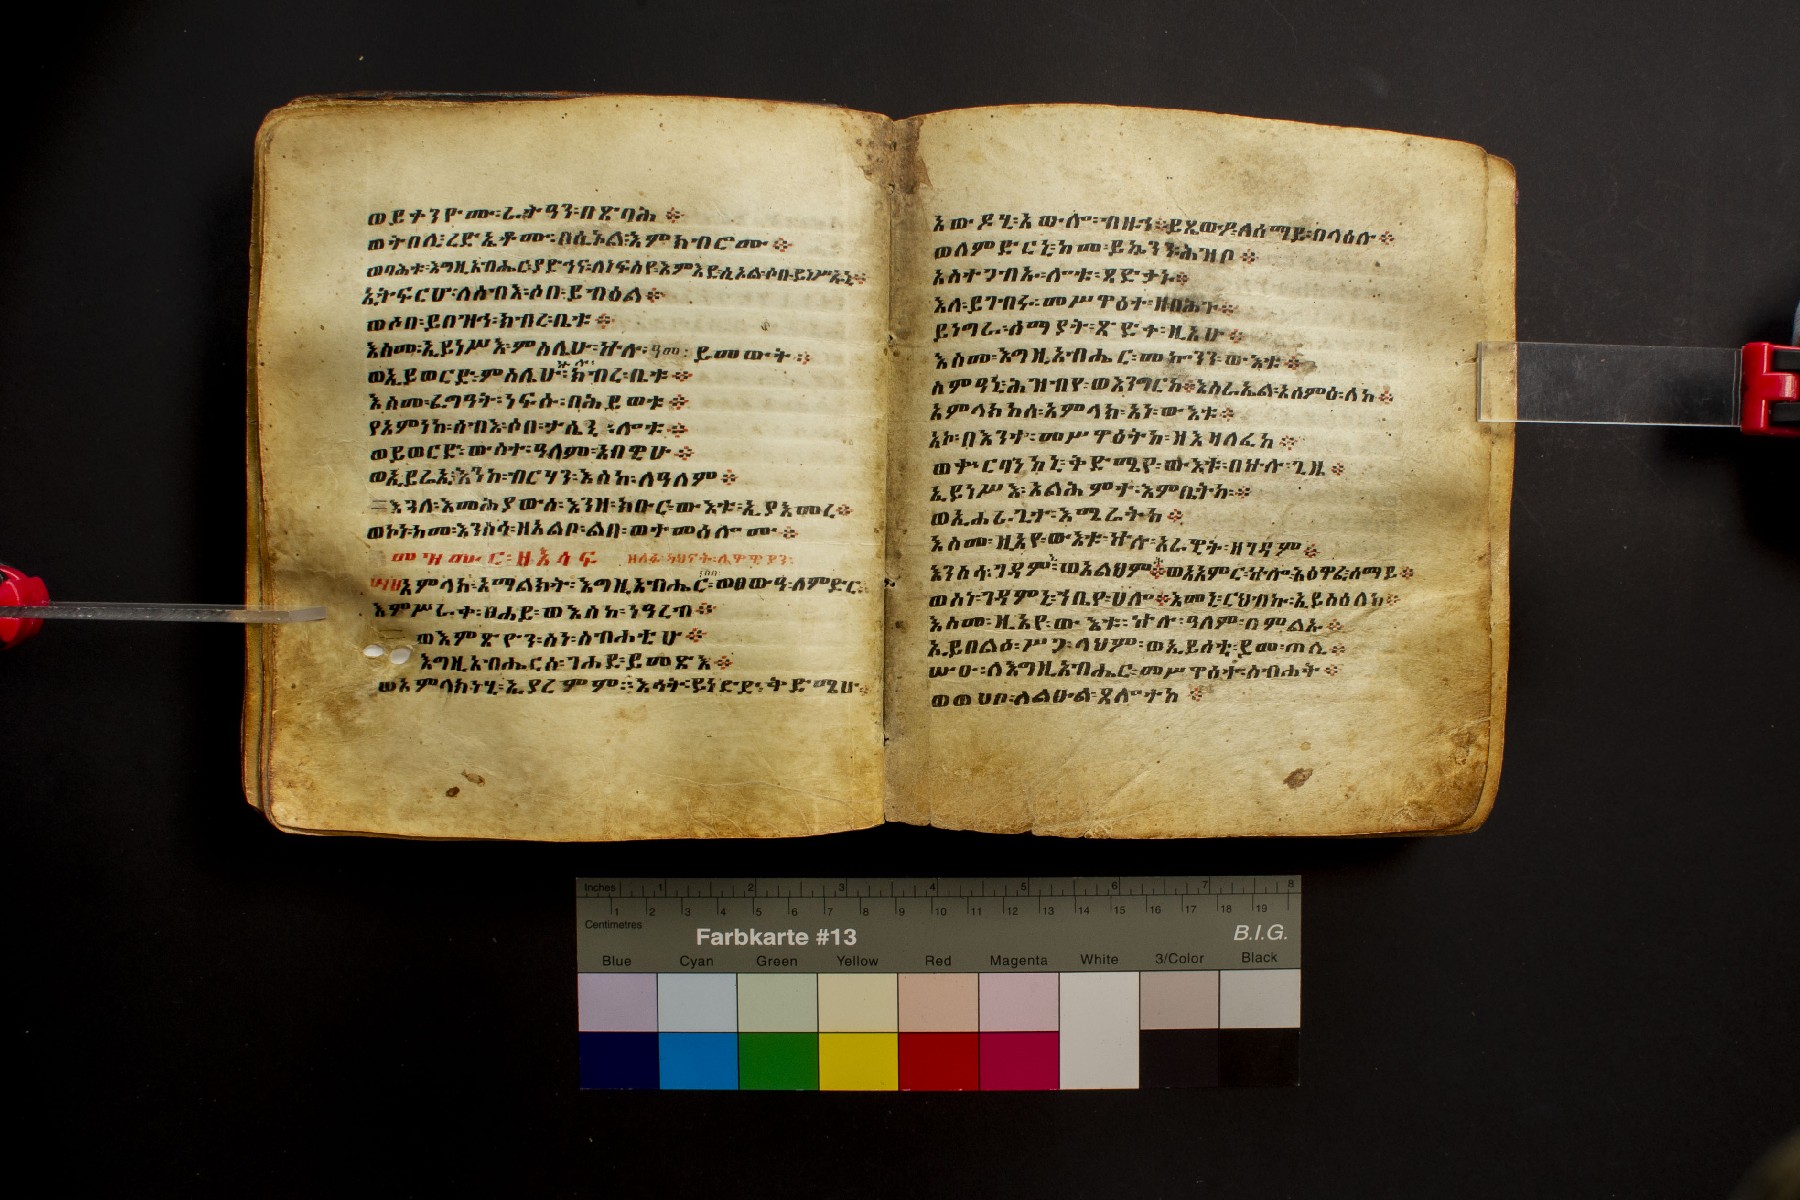 ወይቀንዮሙ፡ራትዓን፡በጽባሕ፨
ወትበሊ፡ረድኤቶሙ፡በሲኦል፡እምክብሮሙ፨
ወባሕቱ፡እግዚአብሔር፡ያድኅና፡ለነፍስየ፡እምእደ፡ሲኦል፡ሶበ፡ይነሥኡኒ፨
ኢትፍርሆ፡ለሰብእ፡ሶበ፡ይብዕል፨
ወሶበ፡ይበዝኅ፡ክብረ፡ቤቱ፨
እስመ፡ኢይነሥእ፡ምስሌሁ፡ኵሉ፡ዓመ፡ይመውት፨
ወኢይወርድ፡ምስሌሁ፡ክብረ፡ቤቱ፨
እስመ፡ፈግዓት፡ነፍሱ፡በሕይወቱ፨
የአምነከ፡ሰብእ፡ሶበ፡ታሤኒ፡ሎቱ፨
ወይወርድ፡ውስተ፡ዓለመ፡አበዊሁ፨
ወኢይሬኢ፡እንከ፡ብርሃን፡እስከ፡ለዓለም፨
እጓለ፡እመሕያውሰ፡እንዘ፡ክቡር፡ውእቱ፡ኢያእመረ፨
ወኮነ፡ከመ፡እንስሳ፡ዘአልቦ፡ልበ፡ወተመሰሎሙ፨
መዝሙር፡ዘአሳፍ
አምላከ፡አማልክት፡እግዚአብሔር፡ወፀውዓ፡ለምድር፨
እምሥራቀ፡ፀሐይ፡ወእስከ፡ነዓረብ፨
ወእምጽዮን፡ስነ፡ስብሐቲሁ፨
እግዚአብሔርሰ፡ገሐደ፡ይመጽእ፨
ወአምላክነሂ፡ኢያረምም፡እሳት፡ይነድድ፡ቅድሜሁ፨
እውዶሂ፡እውሎ፡ብዙኅ፨ይጼውዓ፡ለሰማይ፡በላዕሉ፨
ወለምድርኒ፡ከመ፡ይኰንን፡ሕዝቦ፨
አስተጋብኡ፡ሎቱ፡ጻድቃኑ፨
እለ፡ይገብሩ፡መሥዋዕተ፡ዘበሕጉ፨
ይነግራ፡ሰማያት፡ጽድቀ፡ዚአሁ፨
እስመ፡እግዚአብሔር፡መኰንን፡ውእቱ፨
ስምዓኒ፡ሕዝብየ፡ወእንግርከ፨እስራኤል፡አሰምዕ፡ለከ፨
አምላክከሰ፡አምላክ፡አነ፡ውእቱ፨
አኮ፡በእንተ፡መሥዋዕትከ፡ዘእዛለፈከ፨
ወቍርባንከኒ፡ቅድሜየ፡ውእቱ፡በኵሉ፡ጊዜ፨
ኢይነሥእ፡አልሕምተ፡እምቤትከ፨
ወኢሐራጊተ፡እሜራትከ፨
እስመ፡ዚአየ፡ውእቱ፡ኵሉ፡አራዊት፡ዘገዳም፨
እንስሳ፡ገዳም፡ወአልህም፨ወአአምር፡ኵሎ፡አዕዋፈ፡ሰማይ፨
ወስነ፡ገዳምኒ፡ኀቤየ፡ሀሎ፨እመኒ፡ርህብኩ፡ኢይስዕለከ፨
እስመ፡ዚአየ፡ውእቱ፡ኵሉ፡ዓለም፡በምልኡ፨
ኢይበልዕ፡ሥጋ፡ላህም፡ወኢይሰቲ፡ደመ፡ጠሊ፨
ሡዑ፡ለእግዚአብሔር፡መሥዋዕተ፡ስብሐት፨
ወወሀቦ፡ለልዑል፡ጸሎተከ፨
Inches 1 2 3 4 5 6 7 8
1 2 3 4 5 6 7 8 9 10 11 12 13 14 15 16 17 18 19
Centimetres
Farbkarte #13
B.I.G.
Blue Cyan Green Yellow Red Magenta White 3/Color Black